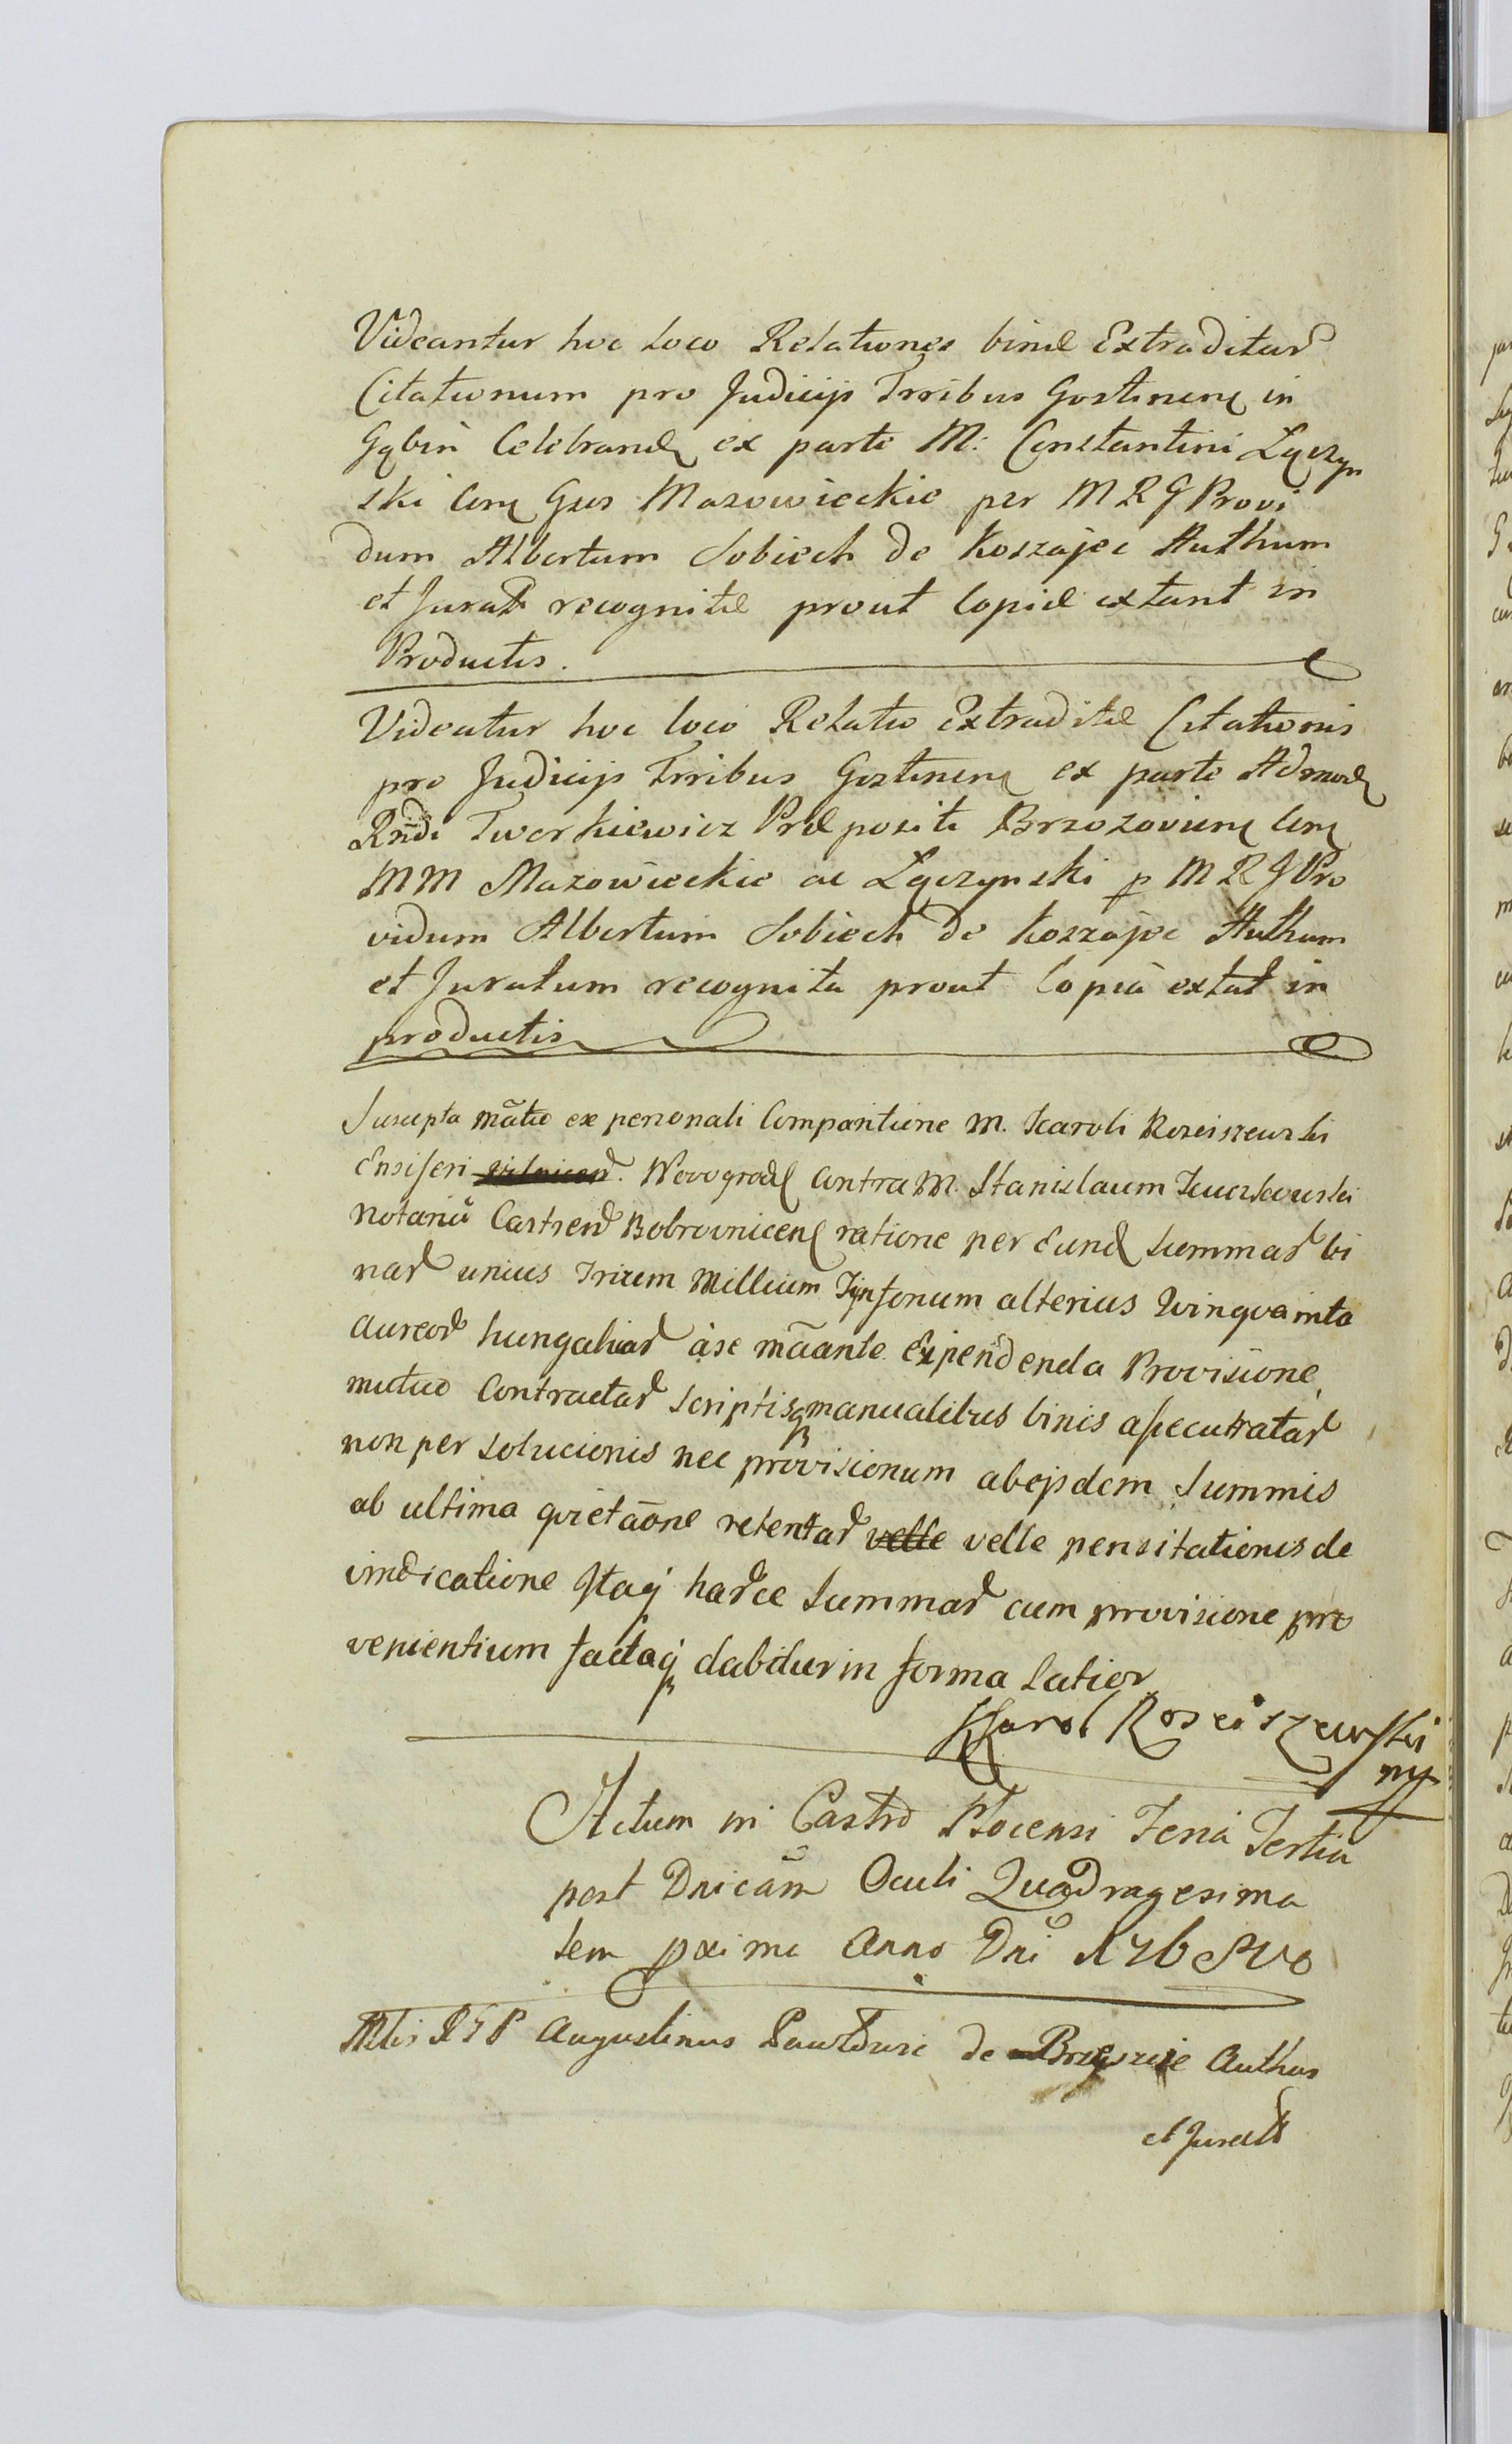 Videantur hoc loco Relationes binæ Extraditar
Citationum pro Judicijs Trribus Gostinen in
Gąbin Celebrand ex parte M: Constantini Łączyn
ski Con Gsos Mazowieckie per M R G Provi
dum Albertum Sobiech de Koszajec Authum
et Jurat recognitæ prout Copiæ extant in
Productis.
Videatur hoc loco Relatio Extraditæ Citationis
pro Judicijs Trribus Gostinen ex parte Admod
Rndi Tworkiewicz Præpositi Brzozovien Con
MM Mazowieckie ac Łączynski p M R G Pro
vidum Albertum Sobiech de Koszajec Authum
et Juratum recognita prout Copia extat in
productis
Suscepta mãtio ex personali Comparitione M. Karoli Rosciszewski
Ensiferi Novogrod Contra M. Stanislaum
Notariũ Castren Bobrovnicen ratione per Eund Summar bi
nar unius Trium Millium Tynfonum alterius Quinquainta
aureor hungalicar àse mãante Expendenda Provisione,
mutuo Contractar Scriptisq manualibus binis
non per Solucionis nec provisionum abejsdem Summis
ab ultima qvietaõne retentar velle velle pensitationis de
vindicatione Itaq harce Summar cum provisione pro
venientium factaq dabitur in forma Latior
Karol Rosciszewski
mp
Actum in Castro Płocensi Feria Tertia
post Dnicam Oculi Quadragesima
lem pxima Anno Dni 1768vo
Mtis RGP Augustinus de Authus
et Juratt